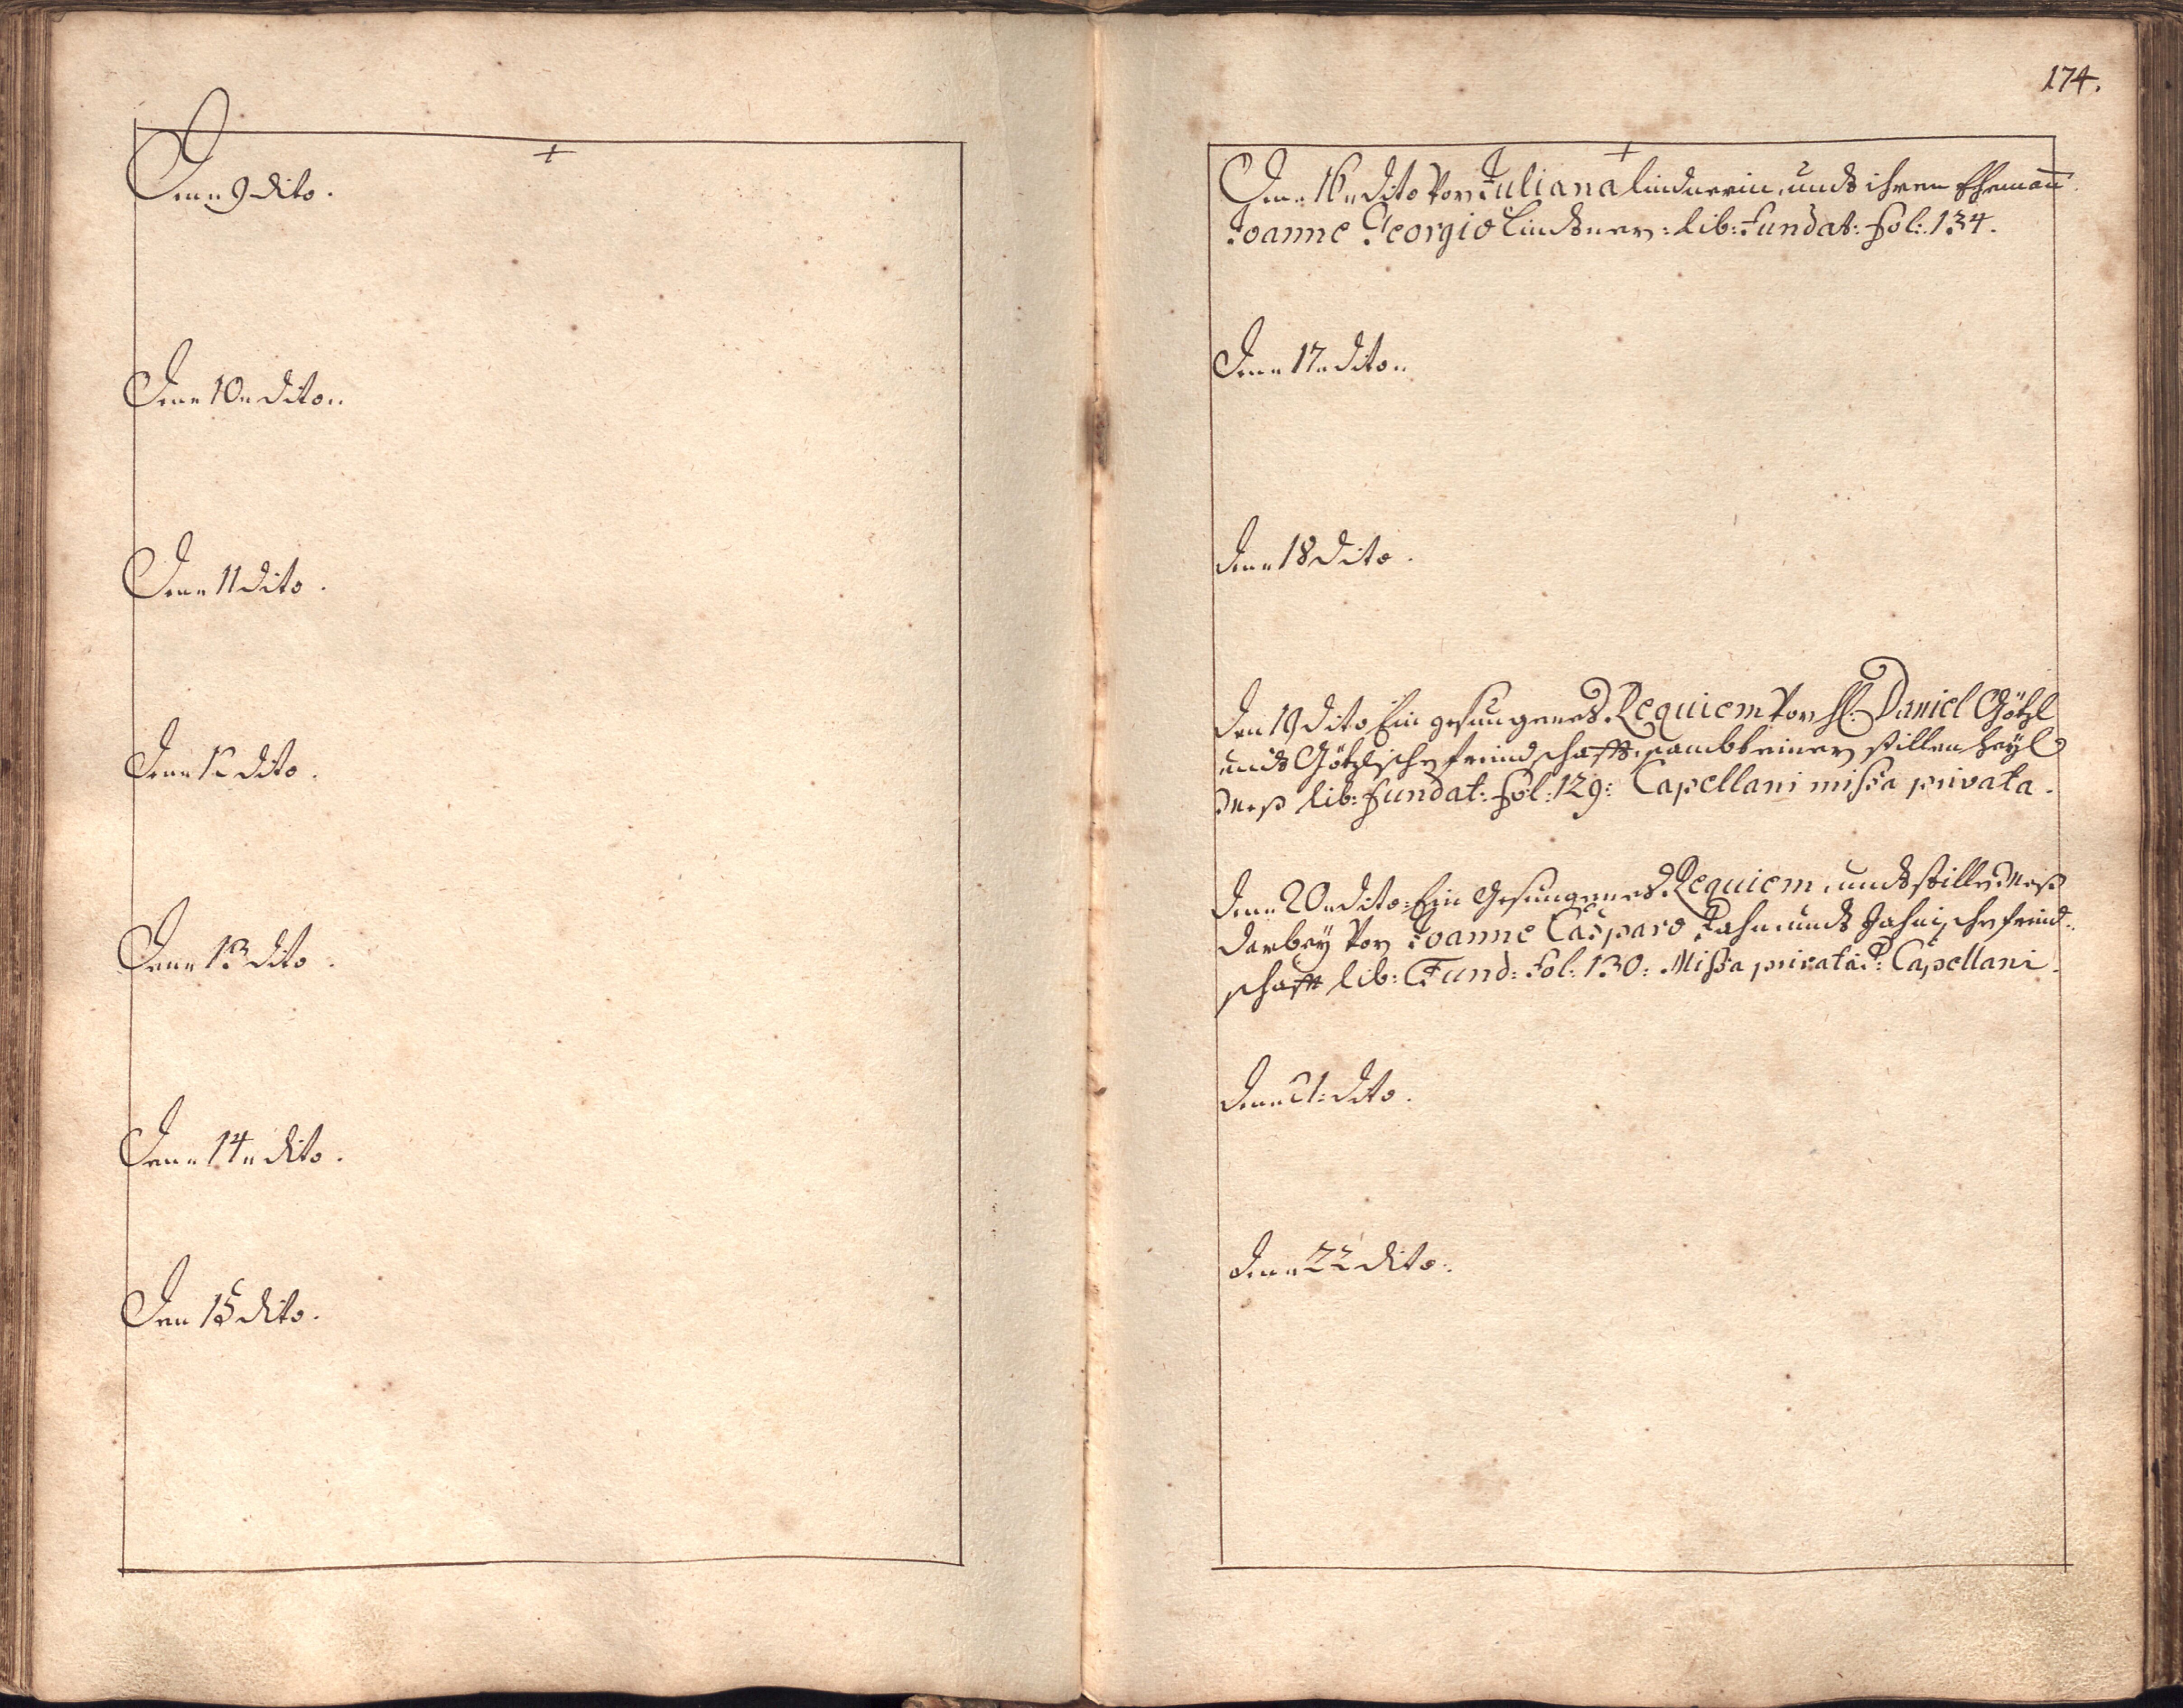 +
Den 9 dito.
Den 10 dito.
Den 11 dito.
Den 12 dito.
Den 13 dito.
Den 14 dito.
Den 15 dito.
174.
+
Den 16 dito vor Juliana Lindnerin, undt ihren Ehemañ
Joanne Georgio Lindtner: lib: Fundat: fol: 134.
Den 17 dito.
Den 18 dito.
Den 19 dito Ein gesungenes Requiem vor H: Daniel Götzl
undt Götzlische freindschafft, sambt einer stillen heyl
Mess lib: fundat: fol: 129: Capellani missa privata.
Den 20 dito: Ein Gesungenes Requiem, undt stille Mess
darbey vor Joanne Casparo Jahn, undt Jahnische freind-
schafft lib: Fund: Fol: 130: Missa privata D: Capellani.
Den 21: dito.
Den 22 dito.